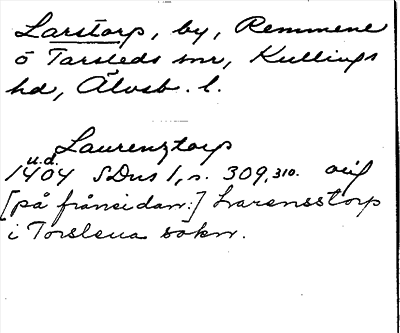 Larstorp, by, Remmene
o Tarsleds snr, Kullings
hd, Älvsb. l.
Laurenztorp
u.d.
1404 SDns 1, s. 309, 310. orig
[på frånsidan:] Larensstorp
i Torslena sokn.